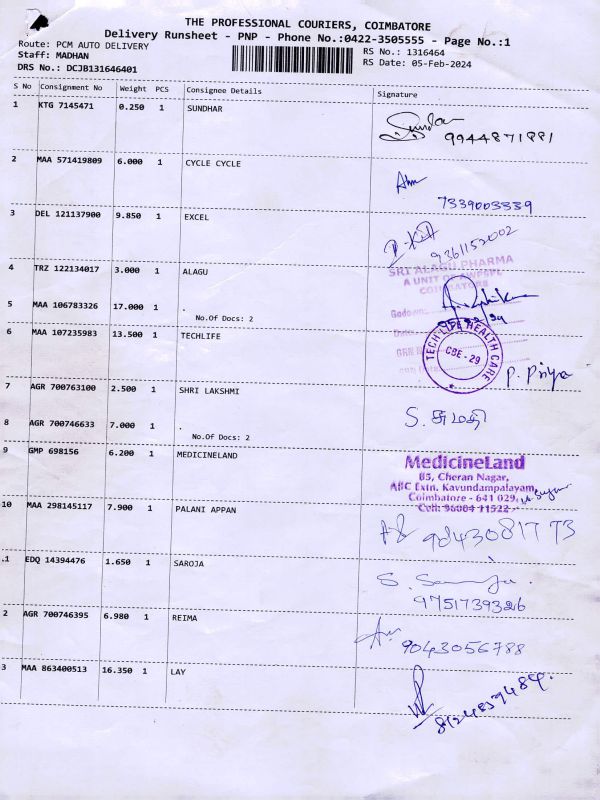 THE PROFESSIONAL COURIERS, COIMBATORE
Delivery Runsheet - PNP - Phone No.:0422-3505555 - Page No.:1
Route: PCM AUTO DELIVERY
RS No.: 1316464
Staff: MADHAN
RS Date: 05-Feb-2024
DRS No.: DCJB131646401
S No Consignment No Weight PCS Consignee Details Signature
1 KTG 7145471 0.250 1 SUNDHAR
9944871881
2 MAA 571419809 6.000 1 CYCLE CYCLE
7339003339
3 DEL 121137900 9.850 1 EXCEL
9361152002
SRI ALAGU PHARMA
A UNIT OF
COIMBATORE
4 TRZ 122134017 3.000 1 ALAGU
Godown
5 MAA 106783326 17.000 1 .
No.Of Docs: 2
6 MAA 107235983 13.500 1 TECHLIFE
TECH LIFE HEALTH CARE
CBE - 29
P. Priya
7 AGR 700763100 2.500 1 SHRI LAKSHMI
S. சுமதி
8 AGR 700746633 7.000 1 .
No.Of Docs: 2
9 GMP 698156 6.200 1 MEDICINELAND
MedicineLand
85, Cheran Nagar,
ABC Extn. Kavundampalayam,
Coimbatore - 641 029.
Cell: 96004 11522
10 MAA 298145117 7.900 1 PALANI APPAN
9843081773
.1 EDQ 14394476 1.650 1 SAROJA
9751739326
2 AGR 700746395 6.980 1 REIMA
9043056788
3 MAA 863400513 16.350 1 LAY
8124859484.